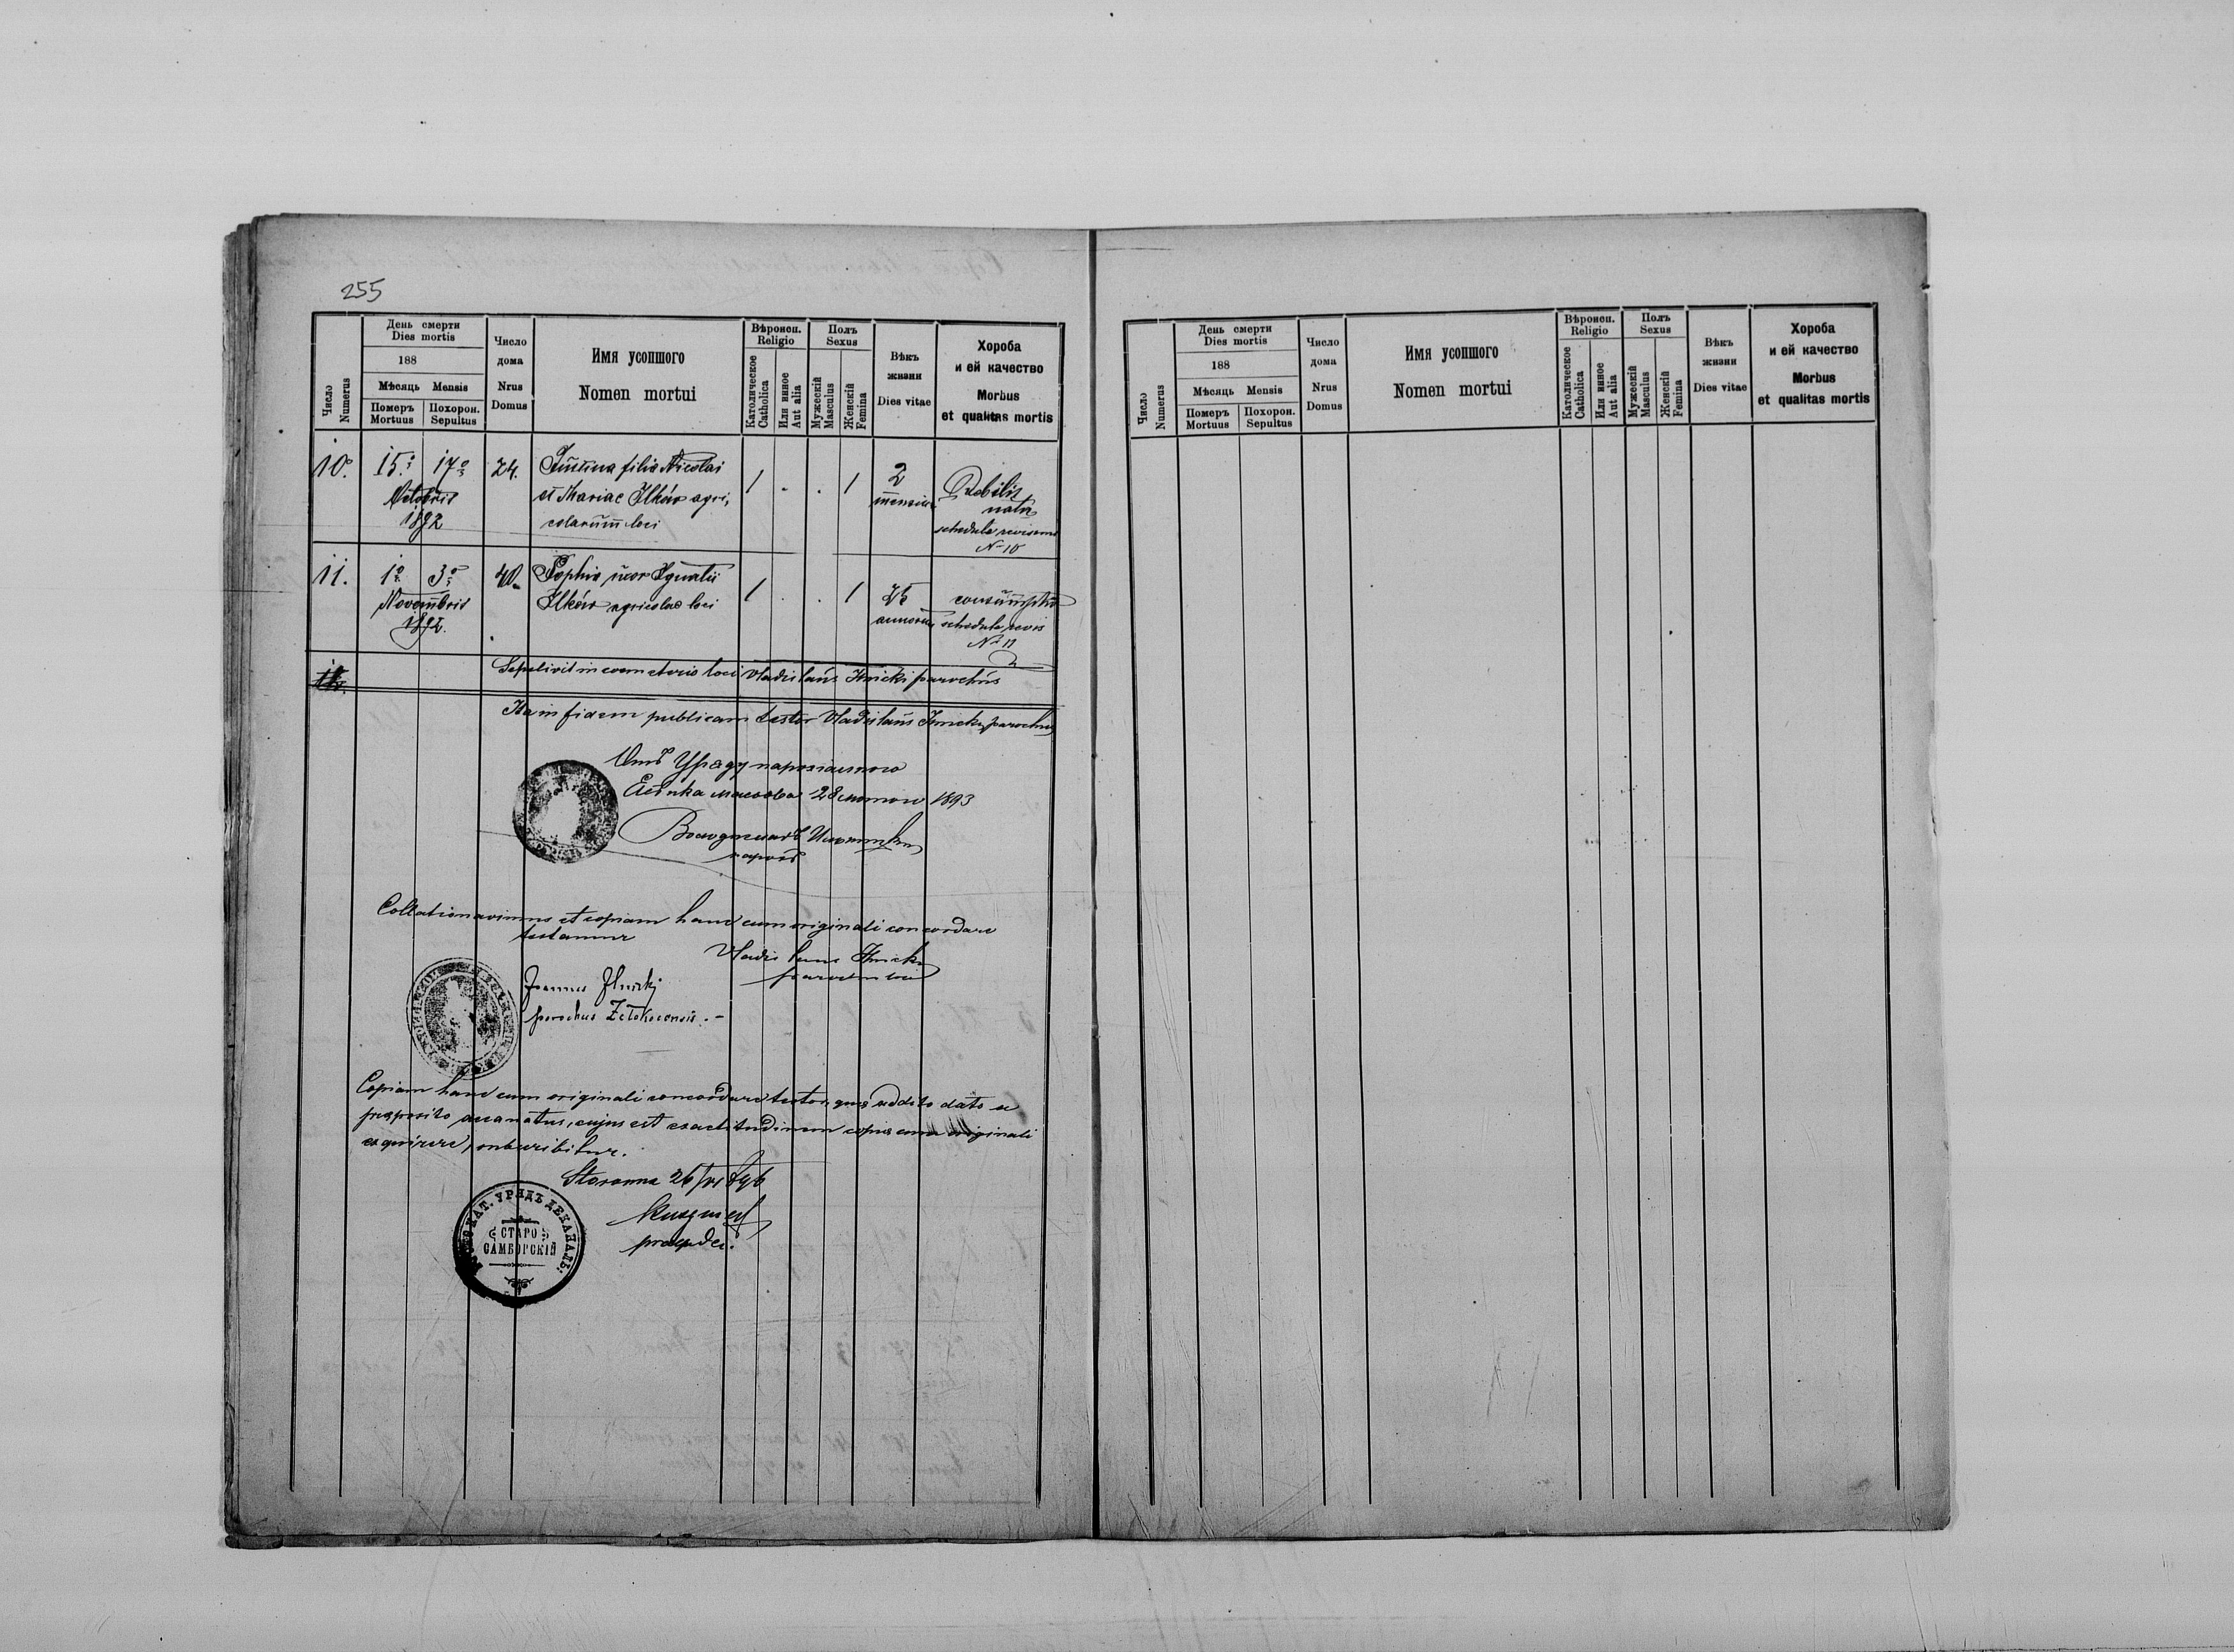 255
Число
Numerus
День смерти
Dies mortis
188
Мѣсяць Mensis
Померъ
Mortuus
Похорон.
Sepultus
Число
дома
Nrus
Domus
Имя усопшого
Nomen mortui
Вѣроисп.
Religio
Католическое
Catholica
Или инное
Aut alia
Полъ
Sexus
Мужескій
Masculus
Женскій
Femina
Вѣкъ
жизни
Dies vitae
Хороба
и ей качество
Morbus
et qualitas mortis
10. 15. 17. 24. Justina filia Nicolai 1 . . 1 2
Octobris et Mariae Ilków agri, mensium Debilis
1892 colarum loci nata
schedula revisoris
N 10
11. 1 3 40. Sophia uxor Ignatii 1 . . 1 annorum consumptio
Novembris Ilków agricolae loci schedula revis
1892. N 11
Sepelivit in coemeterio loci Vladislaus Ilnicki parochus
Ita in fidem publicam testor Vladislaus Ilnicki parochus
Отъ Уряду парохіального
28 лютого 1893
Володиславъ Ильницкій
парохъ
Collationavimus et copiam hanc cum originali concordare
testamur
Vladislaus Ilnicki
parochus loci
Joannes Ilnicki
parochus
Copiam hanc cum originali concordare testor, quae addito dato a
praeposito decanatus, cujus est exactitudinem copiae cum originali
exquirere, subscribitur.
26/VI 896
КАТ. УРЯДЪ ДЕКАНАЛЬ.
СТАРО
САМБОРСКІЙ
Число
Numerus
День смерти
Dies mortis
188
Мѣсяць Mensis
Померъ
Mortuus
Похорон.
Sepultus
Число
дома
Nrus
Domus
Имя усопшого
Nomen mortui
Вѣроисп.
Religio
Католическое
Catholica
Или инное
Aut alia
Полъ
Sexus
Мужескій
Masculus
Женскій
Femina
Вѣкъ
жизни
Dies vitae
Хороба
и ей качество
Morbus
et qualitas mortis